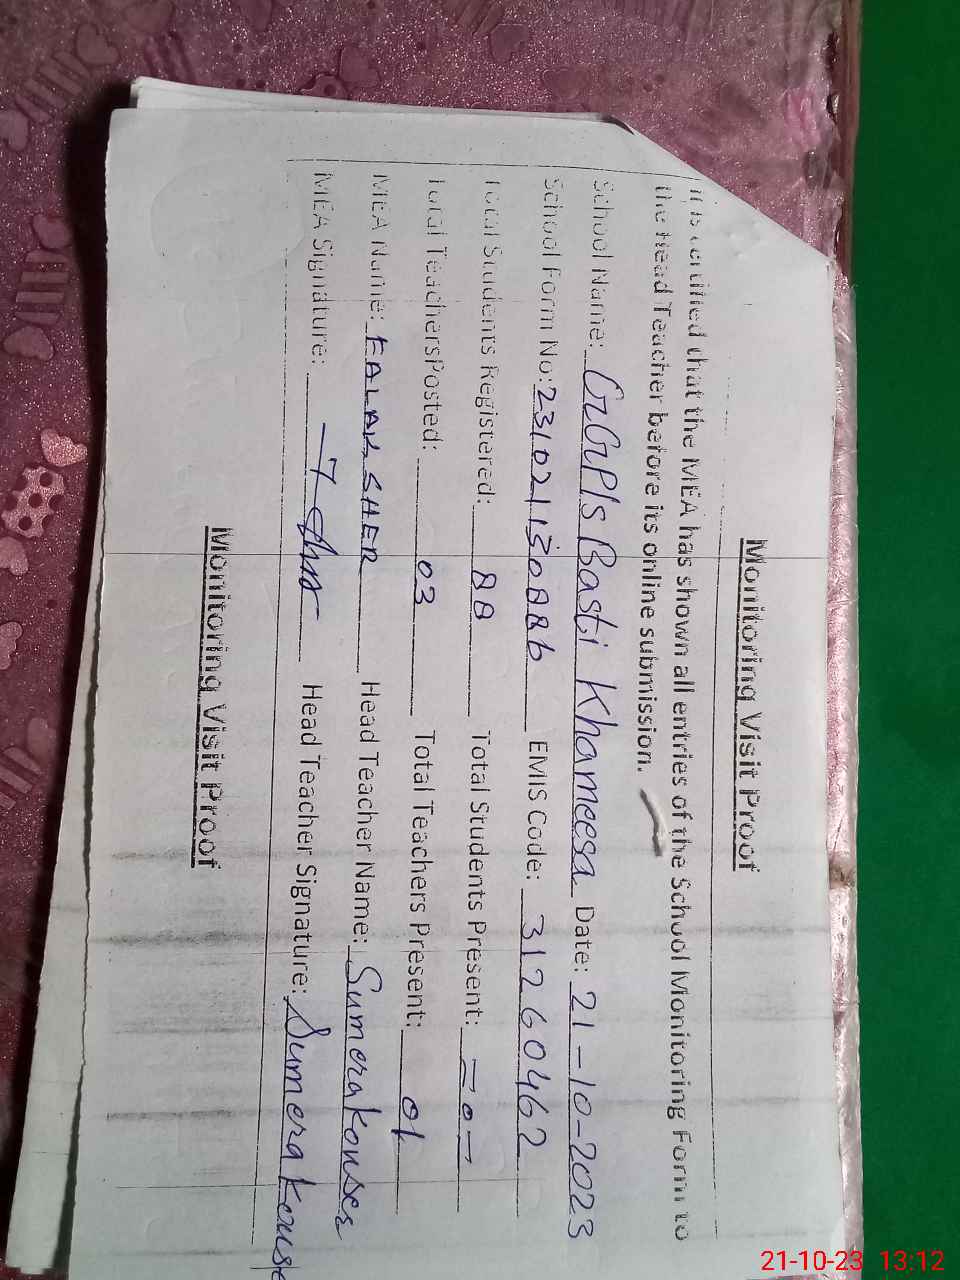 Monitoring Visit Proof
It is certified that the MEA has shown all entries of the School Monitoring Form to
the Head Teacher before its online submission.
School Name: GGPS Basti Khameesa Date: 21-10-2023
School Form No: 231021130886 EMIS Code: 31260462
Total Students Registered: 88 Total Students Present: =0=
Total Teachers Posted: 03 Total Teachers Present: 01
MEA Name: FALAK SHER Head Teacher Name: Sumera Konser
MEA Signature: Head Teacher Signature: Sumera
Monitoring Visit Proof
21-10-23 13:12